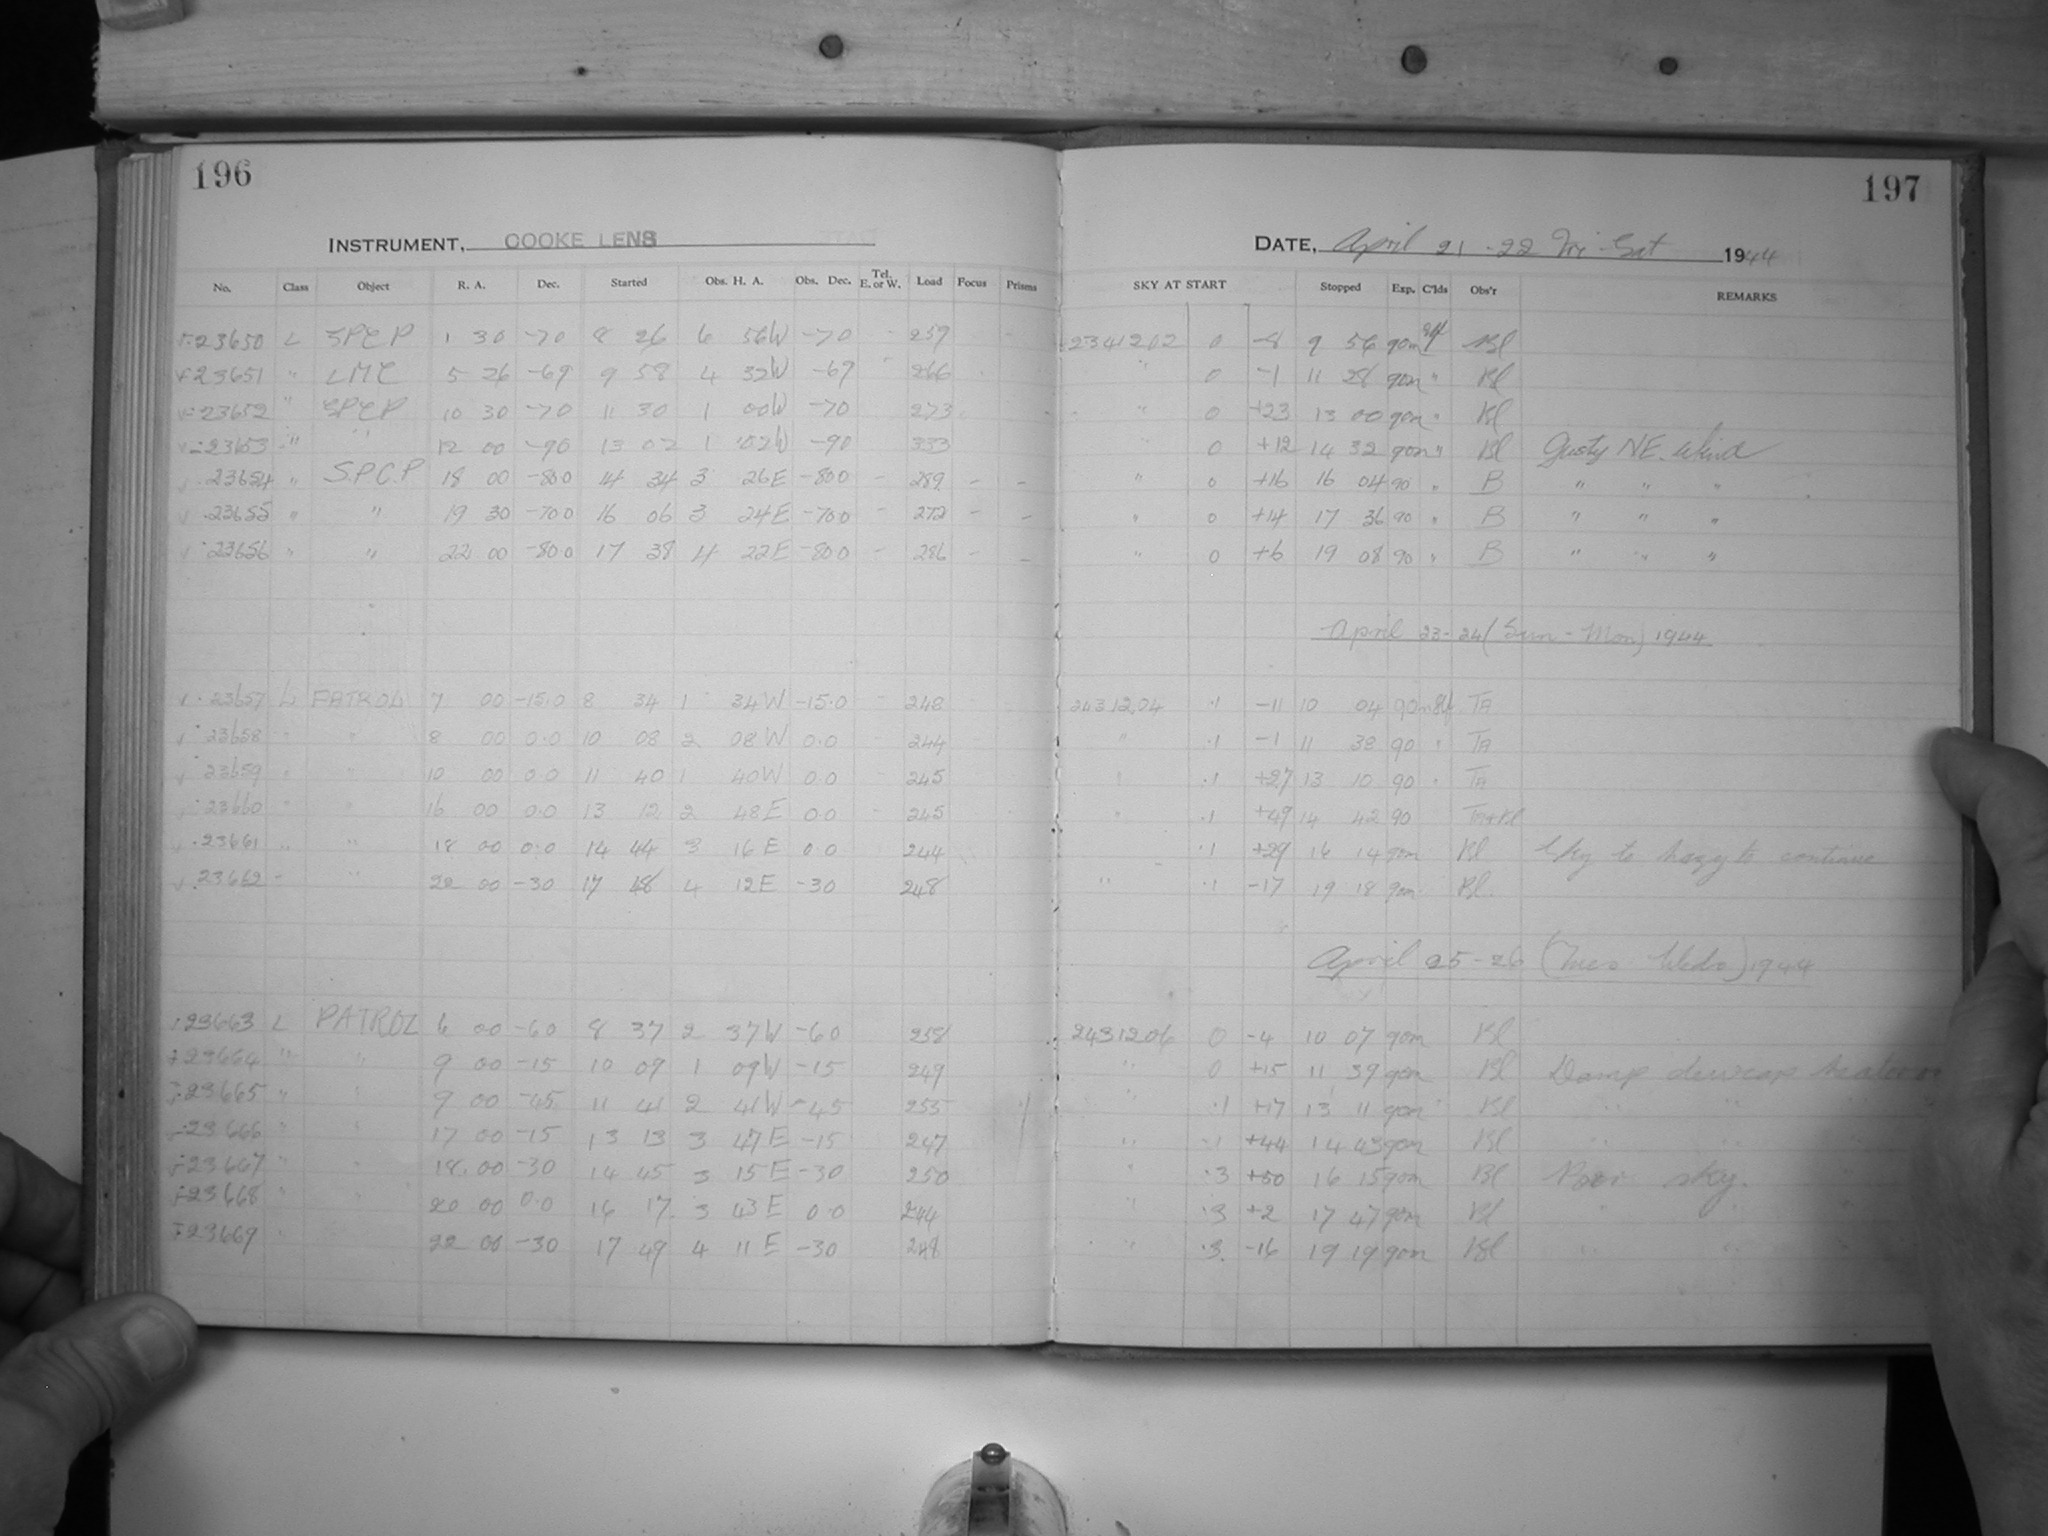 196
197
INSTRUMENT, COOKE LENS
DATE, April 21-22 Fri-Sat 1944
No. Class Object R. A. Dec. Started Obs. H. A. Obs. Dec. Tel. E. or W. Load Focus Prisms SKY AT START Stopped Exp. C'lds Obs'r REMARKS
23650 L SPCP 1 30 -70 8 26 6 56W -70 259 2341202 0 -8 9 56 90m Bl
23651 " LMC 5 26 -69 9 58 4 32W -69 266 " 0 -1 11 28 90m " Bl
23652 " SPCP 10 30 -70 11 30 1 00W -70 273 " 0 +23 13 00 90m " Bl
23653 " " 12 00 -90 13 02 1 02W -90 333 " 0 +12 14 32 90m " Bl Gusty NE. Wind
23654 " S.P.C.P 18 00 -80 0 14 34 3 26E -80 0 - 289 - - " 0 +16 16 04 90 " B " " "
23655 " " 19 30 -70 0 16 06 3 24E -70 0 - 272 - - " 0 +14 17 36 90 " B " " "
23656 " " 22 00 -80 0 17 38 4 22E -80 0 - 286 - - " 0 +6 19 08 90 " B " " "
April 23-24 (Sun-Mon) 1944
23657 L PATROL 7 00 -15.0 8 34 1 34W -15.0 - 248 2431204 .1 -11 10 04 90m TA
23658 " " 8 00 0.0 10 08 2 08W 0.0 - 244 " .1 -1 11 38 90 " TA
23659 " " 10 00 0.0 11 40 1 40W 0.0 - 245 " .1 +27 13 10 90 " TA
23660 " " 16 00 0.0 13 12 2 48E 0.0 - 245 " .1 +49 14 42 90 TA+Bl
23661 " " 18 00 0.0 14 44 3 16E 0.0 244 .1 +29 16 14 90m Bl Sky to hazy to continue
23662 " " 22 00 -30 17 48 4 12E -30 248 " .1 -17 19 18 90m Bl.
April 25-26 (Tues Weds) 1944
23663 L PATROL 6 00 -60 8 37 2 37W -60 258 2431206 0 -4 10 07 90m Bl
23664 " " 9 00 -15 10 09 1 09W -15 249 " 0 +15 11 39 90m Bl Damp dewcap heater on
23665 " " 9 00 -45 11 41 2 41W -45 255 " .1 +17 13 11 90m Bl " "
23666 " " 17 00 -15 13 13 3 47E -15 247 " .1 +44 14 43 90m Bl " "
23667 " " 18.00 -30 14 45 3 15E -30 250 " .3 +50 16 15 90m Bl Poor sky.
23668 " " 20 00 0.0 16 17 3 43E 0.0 244 " .3 +2 17 47 90m Bl " "
23669 " 22 00 -30 17 49 4 11E -30 248 " .3 -16 19 19 90m Bl " "